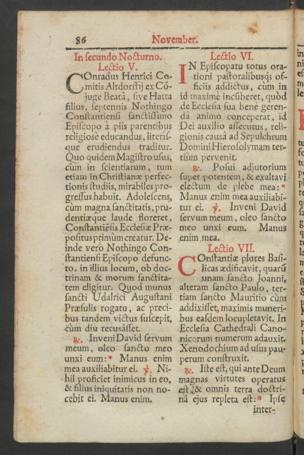 86 November.
In secundo Nocturno.
Lectio V.
COnradus Henrici Co-
mitis Altdorfij ex Có-
juge Beata, sive Hatta
filius, septennis Nothingo
Constantiensi sanctissimo
Episcopo à piis parentibus
religiosè educandus, literis-
que erudiendus traditur.
Quo quidem Magistro usus,
cùm in scientiarum, tum
etiam in Christianæ perfec-
tionis studiis, mirabiles pro-
gressus habuit. Adolescens,
cùm magna sanctitatis, pru-
dentiæque laude floreret,
Constantiēsis Ecclesiæ Præ-
positus primùm creatur. De-
inde verò Nothingo Con-
stantiensi Episcopo defunc-
to, in illius locum, ob doc-
trinam & morum sanctita-
tem eligitur. Quod munus
sancti Udalrici Augustani
Præsulis rogatu, ac preci-
bus tandem victus suscepit,
cùm diu recusâsset.
℟. Inveni David servum
meum, oleo sancto meo
unxi eum: * Manus enim
mea auxiliabitur ei. ℣. Ni-
hil proficiet inimicus in eo,
& filius iniquitatis non no-
cebit ei. Manus enim.
Lectio VI.
IN Episcopatu totus ora-
tioni pastoralibusq; of-
ficiis addictus, cùm in
id maximè incúberet, quòd
de Ecclesia sua benè geren-
da animo conceperat, id
Dei auxilio assecutus, reli-
gionis causa ad Sepulchrum
Domini Hierosolymam ter-
tiùm pervenit.
℟. Posui adjutorium
super potentem, & exaltavi
electum de plebe mea: *
Manus enim mea auxiliabi-
tur ei. ℣. Inveni David
servum meum, oleo sancto
meo unxi eum. Manus
enim mea.
Lectio VII.
COnstantiæ plures Basi-
licas ædificavit, quarū
unam sancto Joanni,
alteram sancto Paulo, ter-
tiam sancto Mauritio cùm
addixisset, maximis muneri-
bus easdem locupletavit. In
Ecclesia Cathedrali Cano-
nicorum numerum adauxit.
Xenodochium ad usus pau-
perum construxit.
℟. Iste est, qui ante Deum
magnas virtutes operatus
est, & omnis terra doctri-
nâ ejus repleta est: * Ipse
inter-